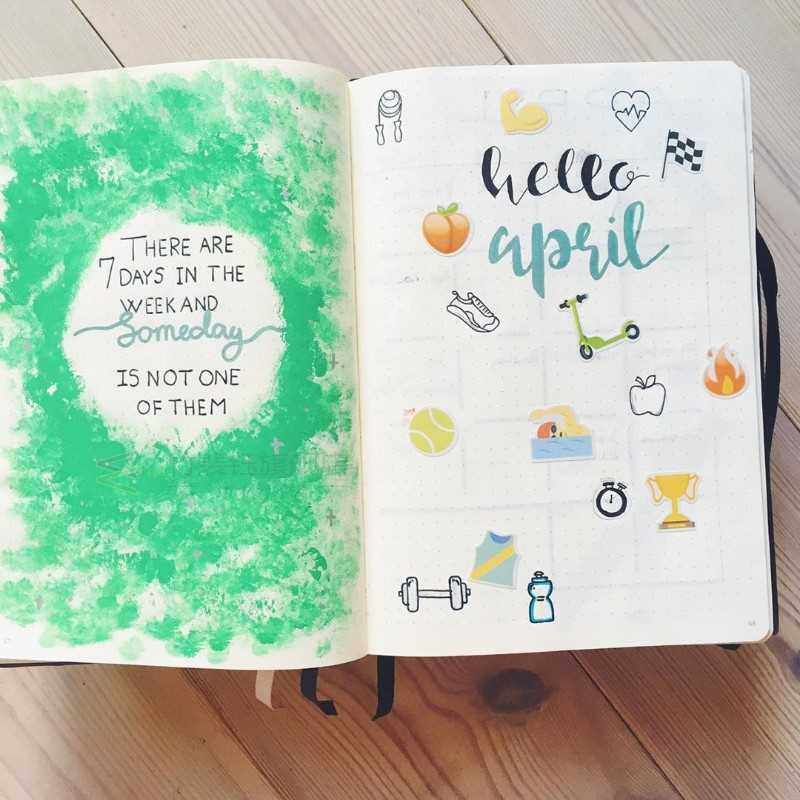 THERE ARE
7 DAYS IN THE
WEEK AND
Someday
IS NOT ONE
OF THEM
hello
april